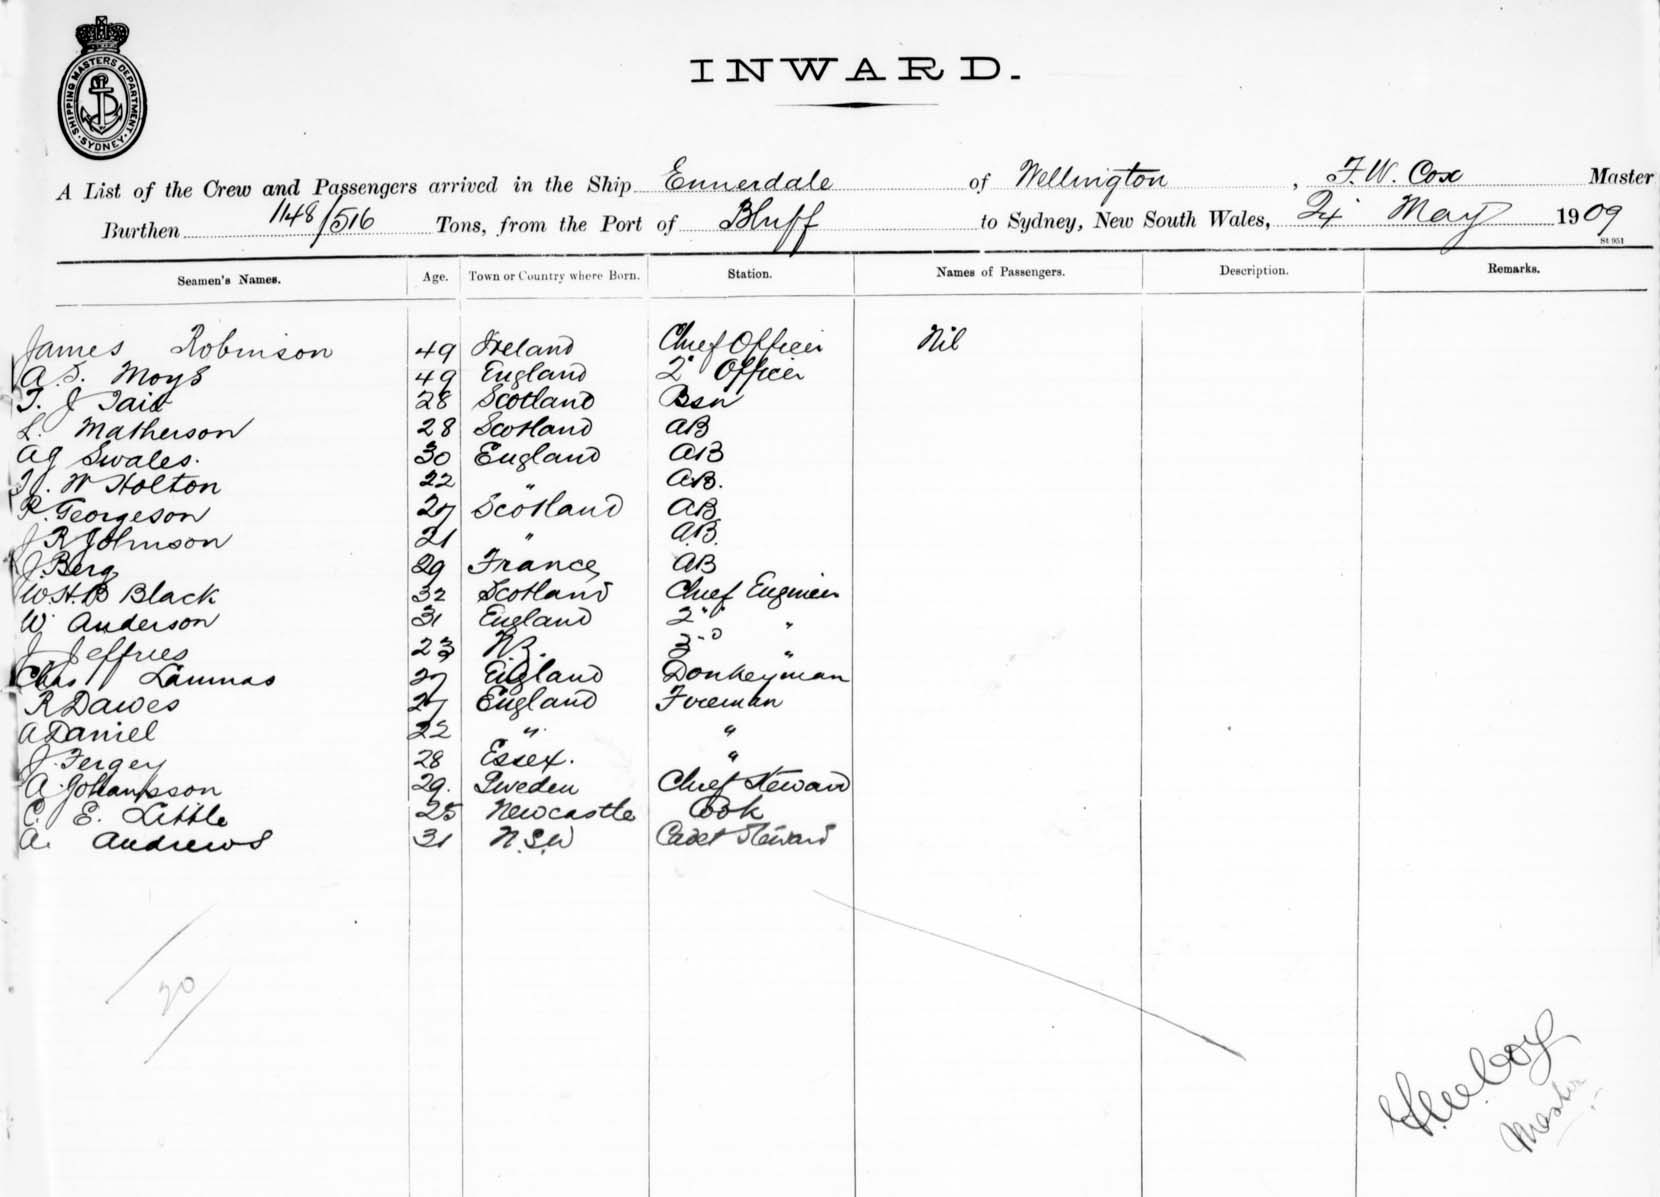 SHIPPING MASTERS DEPARTMENT. SYDNEY
INWARD.
A List of the Crew and Passengers arrived in the Ship Ennerdale of Wellington, F. W. Cox Master
Burthen 1148/516 Tons, from the Port of Bluff to Sydney, New South Wales, 24 May 1909
St 951
Seamen's Names. Age. Town or Country where Born. Station. Names of Passengers. Description. Remarks.
James Robinson 49 Ireland Chief Officer Nil
A. S. Moys 49 England 2 Officer
T. J Tait 28 Scotland Bsn
L. Matherson 28 Scotland AB
A G Swales. 30 England AB
W Holton 22 " A.B.
R. Georgeson 27 Scotland AB
J R Johnson 21 " A.B.
J. Berg 29 France AB
W. H. B Black 32 Scotland Chief Engineer
W. Anderson 31 England 2 "
J Jeffries 23 N.Z. 3rd "
Chas Lammas 27 England Donkeyman
R Dawes 27 England Fireman
A Daniel 22 " "
J. Fergey 28 Essex. "
A. Johansson 29. Sweden Chief Steward
C. E. Little 25 Newcastle Cook
A. Andrews 31 N.S.W Cadet Steward
20
F. W. Cox
Master